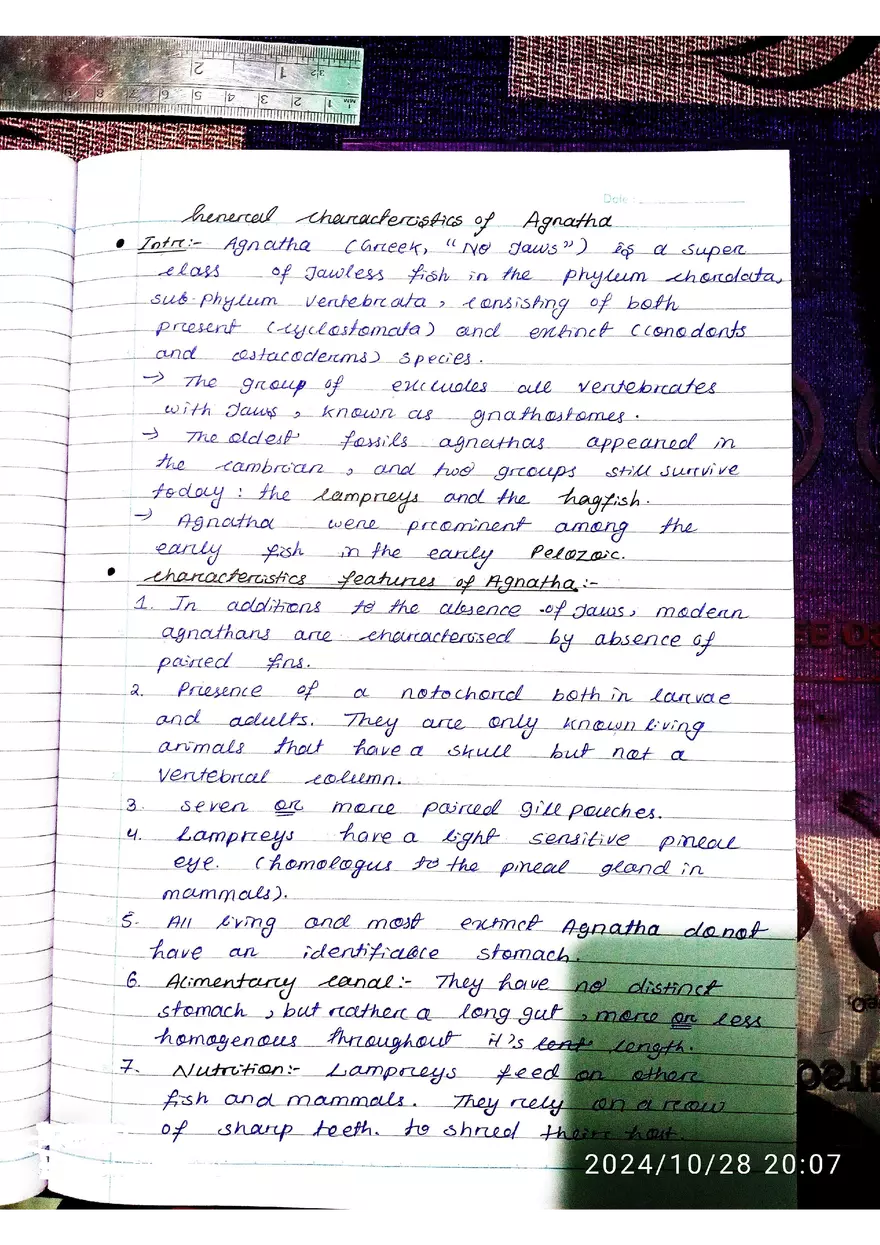 2 1
32
9 8 7 6 5 4 3 2 1 MM
Date :
General characteristics of Agnatha
• Intro:- Agnatha (Greek, "No Jaws") is a super
class of Jawless fish in the phylum chordata,
sub-phylum vertebrata, consisting of both
present (cyclostomata) and extinct (conodonts
and ostacoderms) species.
→ The group of excludes all vertebrates
with Jaws, known as gnathostomes.
→ The oldest fossils agnathas appeared in
the cambrian, and two groups still survive
today: the lampreys and the hagfish.
→ Agnatha were prominent among the
early fish in the early Pelozoic.
• characteristics features of Agnatha:-
1. In additions to the absence of Jaws, modern
agnathans are characterised by absence of
paired fins.
2. Presence of a notochord both in larvae
and adults. They are only known living
animals that have a skull but not a
vertebral column.
3. seven or more paired gill pouches.
4. Lampreys have a light sensitive pineal
eye. (homologus to the pineal gland in
mammals).
5. All living and most extinct Agnatha do not
have an identifiable stomach.
6. Alimentary canal:- They have no distinct
stomach, but rather a long gut, more or less
homogenous throughout it's lent length.
7. Nutrition:- Lampreys feed on other
fish and mammals. They rely on a row
of sharp teeth. to shred their host.
2024/10/28 20:07